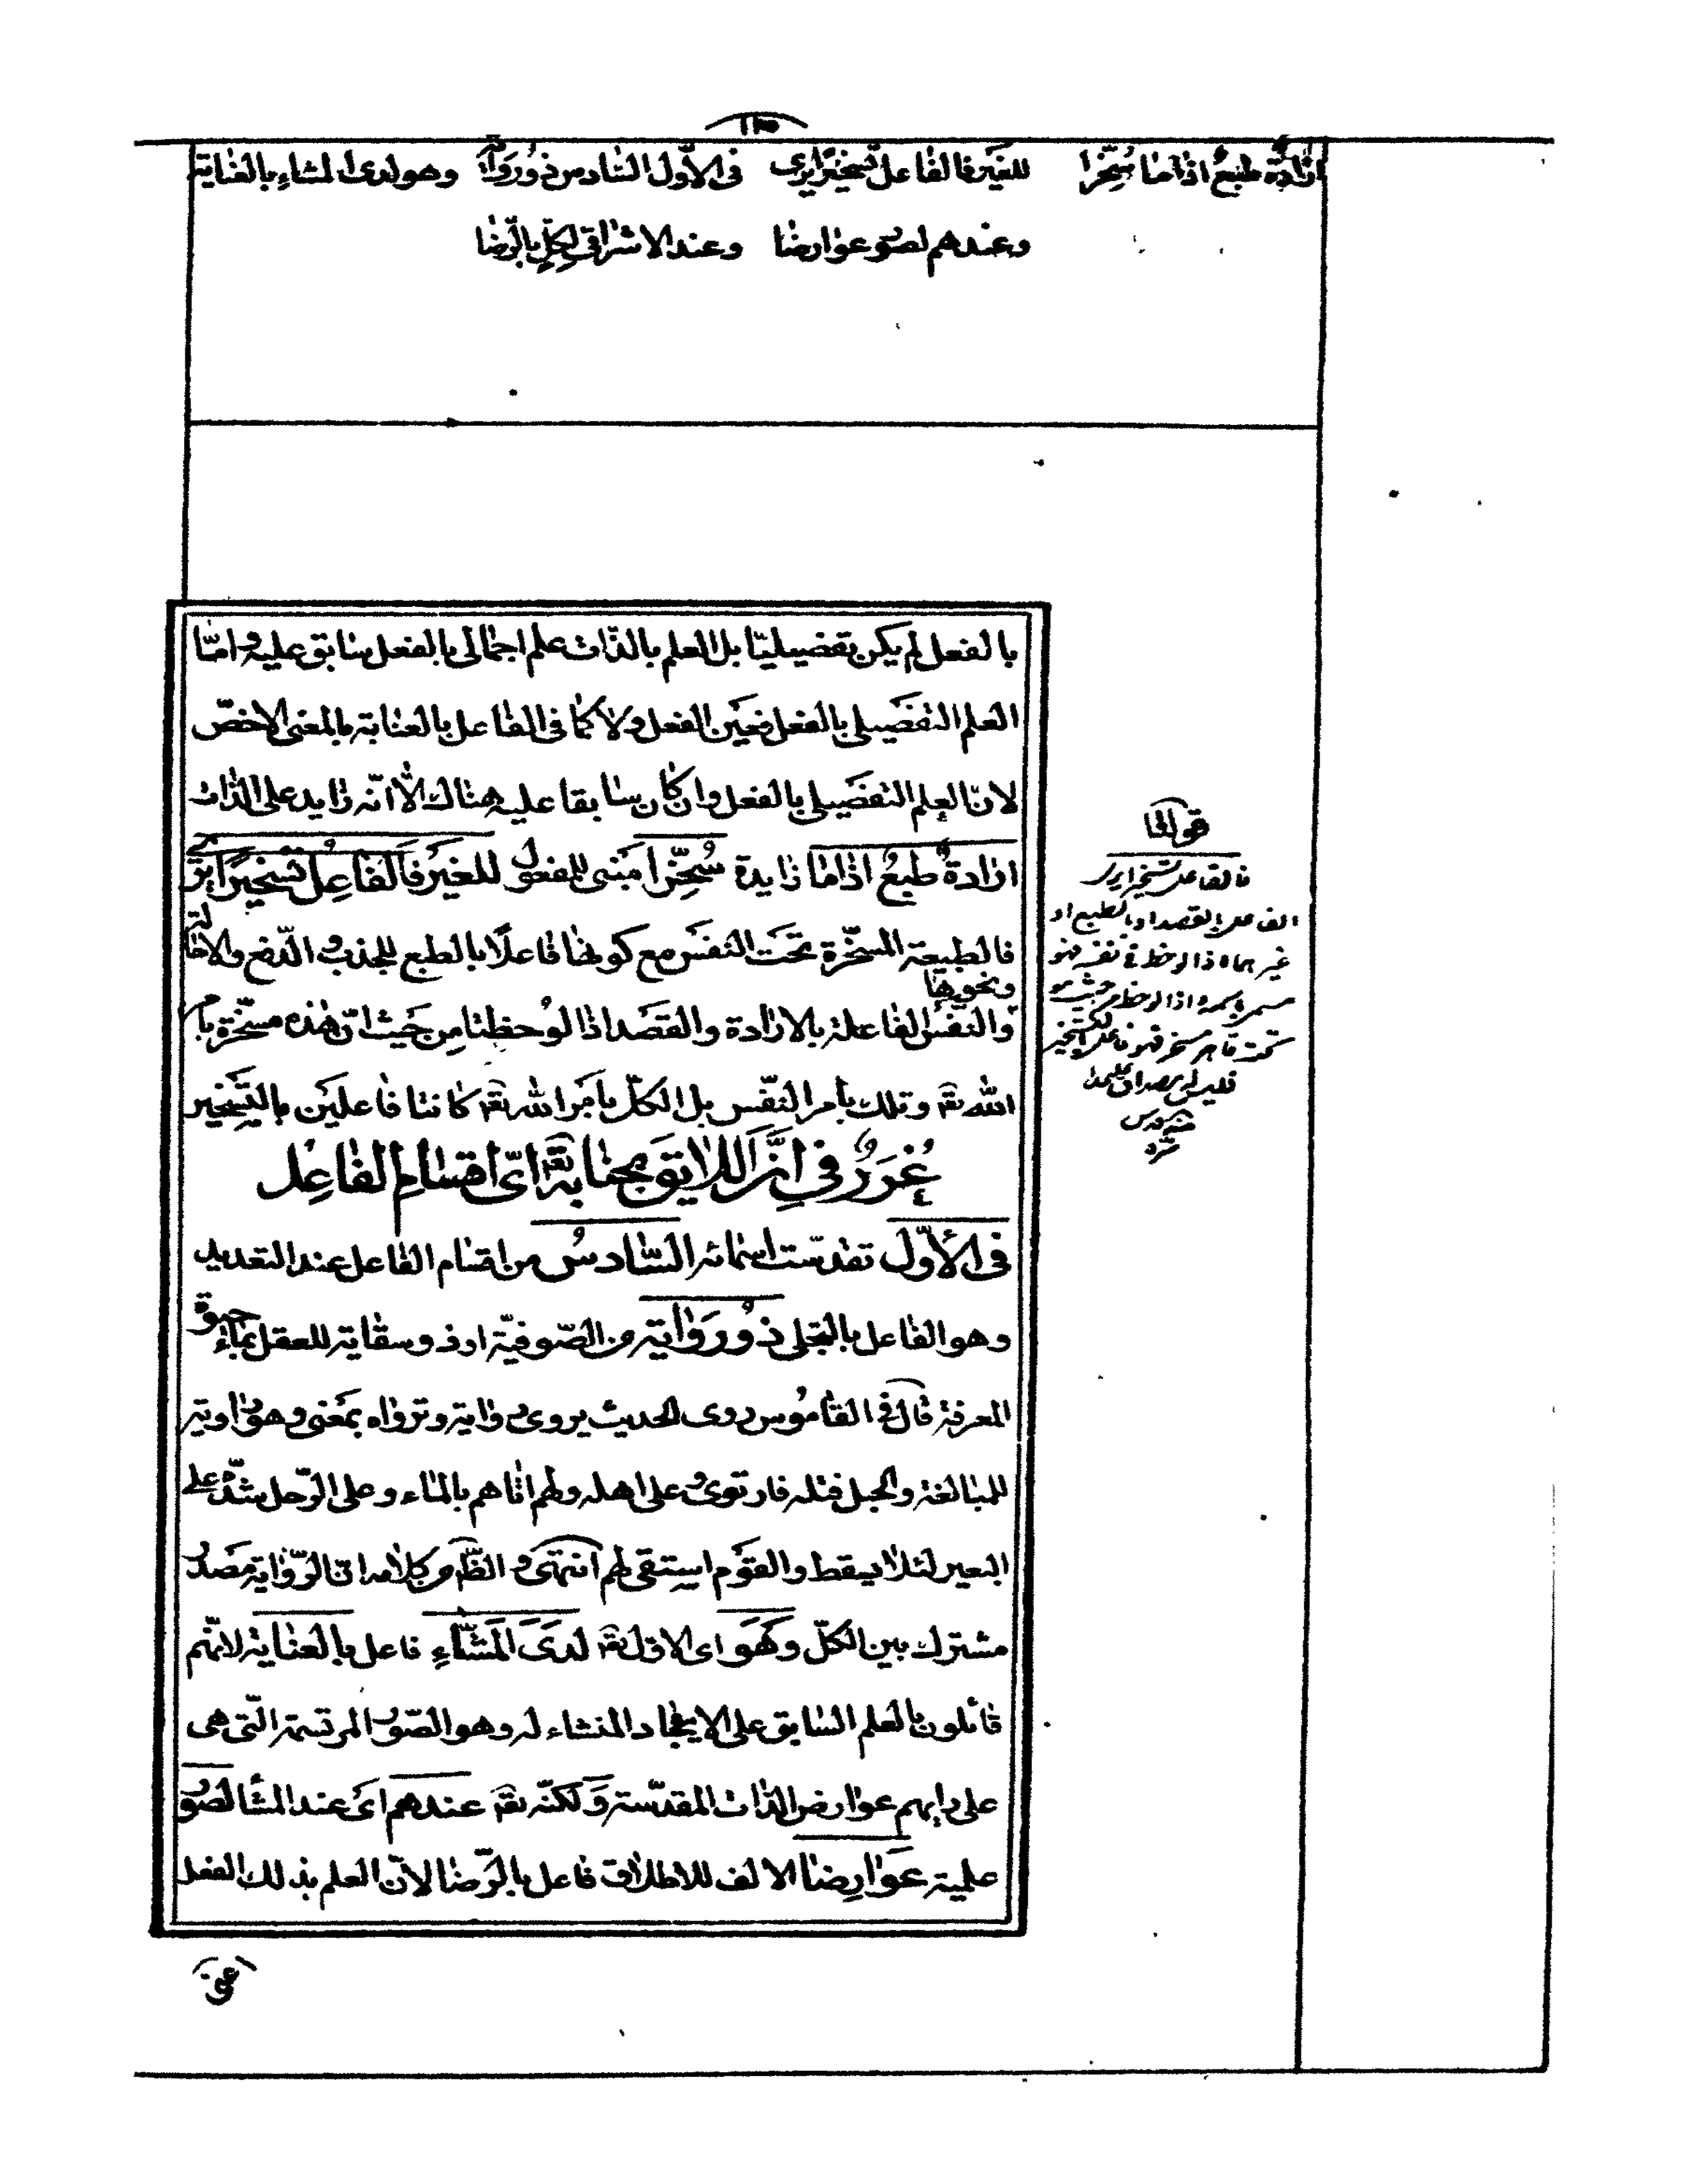 ارادة طبع اذاما سخّرا للغير فالفاعل تسخيرا يرى فى الاوّل السّادس ذو رواء وهو لدى المشاء بالعناية
وعندهم لصور عوارضا وعند الاشراقى لكلّ بالرّضا
بالفعل لم يكن تفضيليّا بل العلم بالذّات علم اجمالى بالفعل سابق عليه و امّا
العلم التفضيلى بالفعل فعين الفعل ولا كما فى الفاعل بالعناية بالمعنى الاخصّ
لانّ العلم التفضيلى بالفعل وان كان سابقا عليه هناك الّا انّه زايد على الذّات
ارادةٌ طبعٌ اذاما زايدة سُخِّرا مبنى للمفعول للغير فالفاعل تسخيرًا يرى
فالطبيعة المسخّرة تحت النفس مع كونها فاعلًا بالطبع للجذب و الدّفع والاحالة
ونحوها
والنّفس الفاعلة بالارادة والقصد اذا لوحظتا من حيث انّ هذه مسخّرة بامر
الله تعہ وتلك بامر النّفس بل الكلّ بامر الله تعہ كانتا فاعلين بالتّسخير
غُرَرٌ فى انّ اللايق بجنابه تعہ اىّ اقسام الفاعل
فى الأوّل تقدسّت اسمائه السّادسُ من اقسام الفاعل عند التعديد
وهو الفاعل بالتجلى ذو رواية من الصّوفيّة او ذو سقاية للعقل بماء حيوة
المعرفة قال فى القاموس روى الحديث يروى رواية وترواه بمعنى وهو راوية
للمبالغة والحبل فتله فارتوى و على اهله ولهم اتاهم بالماء وعلى الرّحل شدّه على
البعير لئلا يسقط والقوم استقى لهم انتهى و الظّ من كلامه انّ الرّواية مصدر
مشترك بين الكلّ وهو اى الاول تعہ لدى المشّاء فاعل بالعناية لانّهم
قائلون بالعلم السّابق على الايجاد المنشاء له وهو الصّور المرتسمة الّتى هى
على رايهم عوارض الذّات المقدّسة ولكنّه تعہ عندهم اى عند المشّا لصور
علمية عوارضا الالف للاطلاق فاعل بالرّضا لانّ العلم بذلك الفعل
قولنا
فالفاعل تسخيرا يرى
الفاعل بالقصد او بالطبع او
غيرهما اذا لوحظ فى نفسه فهو
تحت قاهر مسخر فهو فاعل بالتسخير
منه قدس
سره